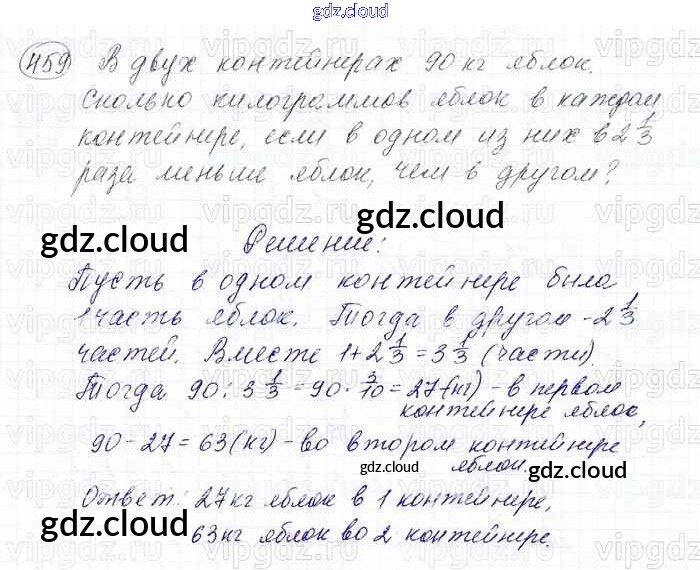 gdz.cloud
459 В двух контейнерах 90 кг яблок.
Сколько килограммов яблок в каждом
контейнере, если в одном из них в 2 1/3
раза меньше яблок, чем в другом?
gdz.cloud
gdz.cloud
Решение:
Пусть в одном контейнере была
1 часть яблок. Тогда в другом - 2 1/3
частей. Вместе 1 + 2 1/3 = 3 1/3 (части).
Тогда 90 : 3 1/3 = 90 · 3/10 = 27 (кг) - в первом
контейнере яблок,
90 - 27 = 63 (кг) - во втором контейнере
яблок.
gdz.cloud
gdz.cloud
Ответ: 27 кг яблок в 1 контейнере,
63 кг яблок во 2 контейнере.
gdz.cloud
gdz.cloud